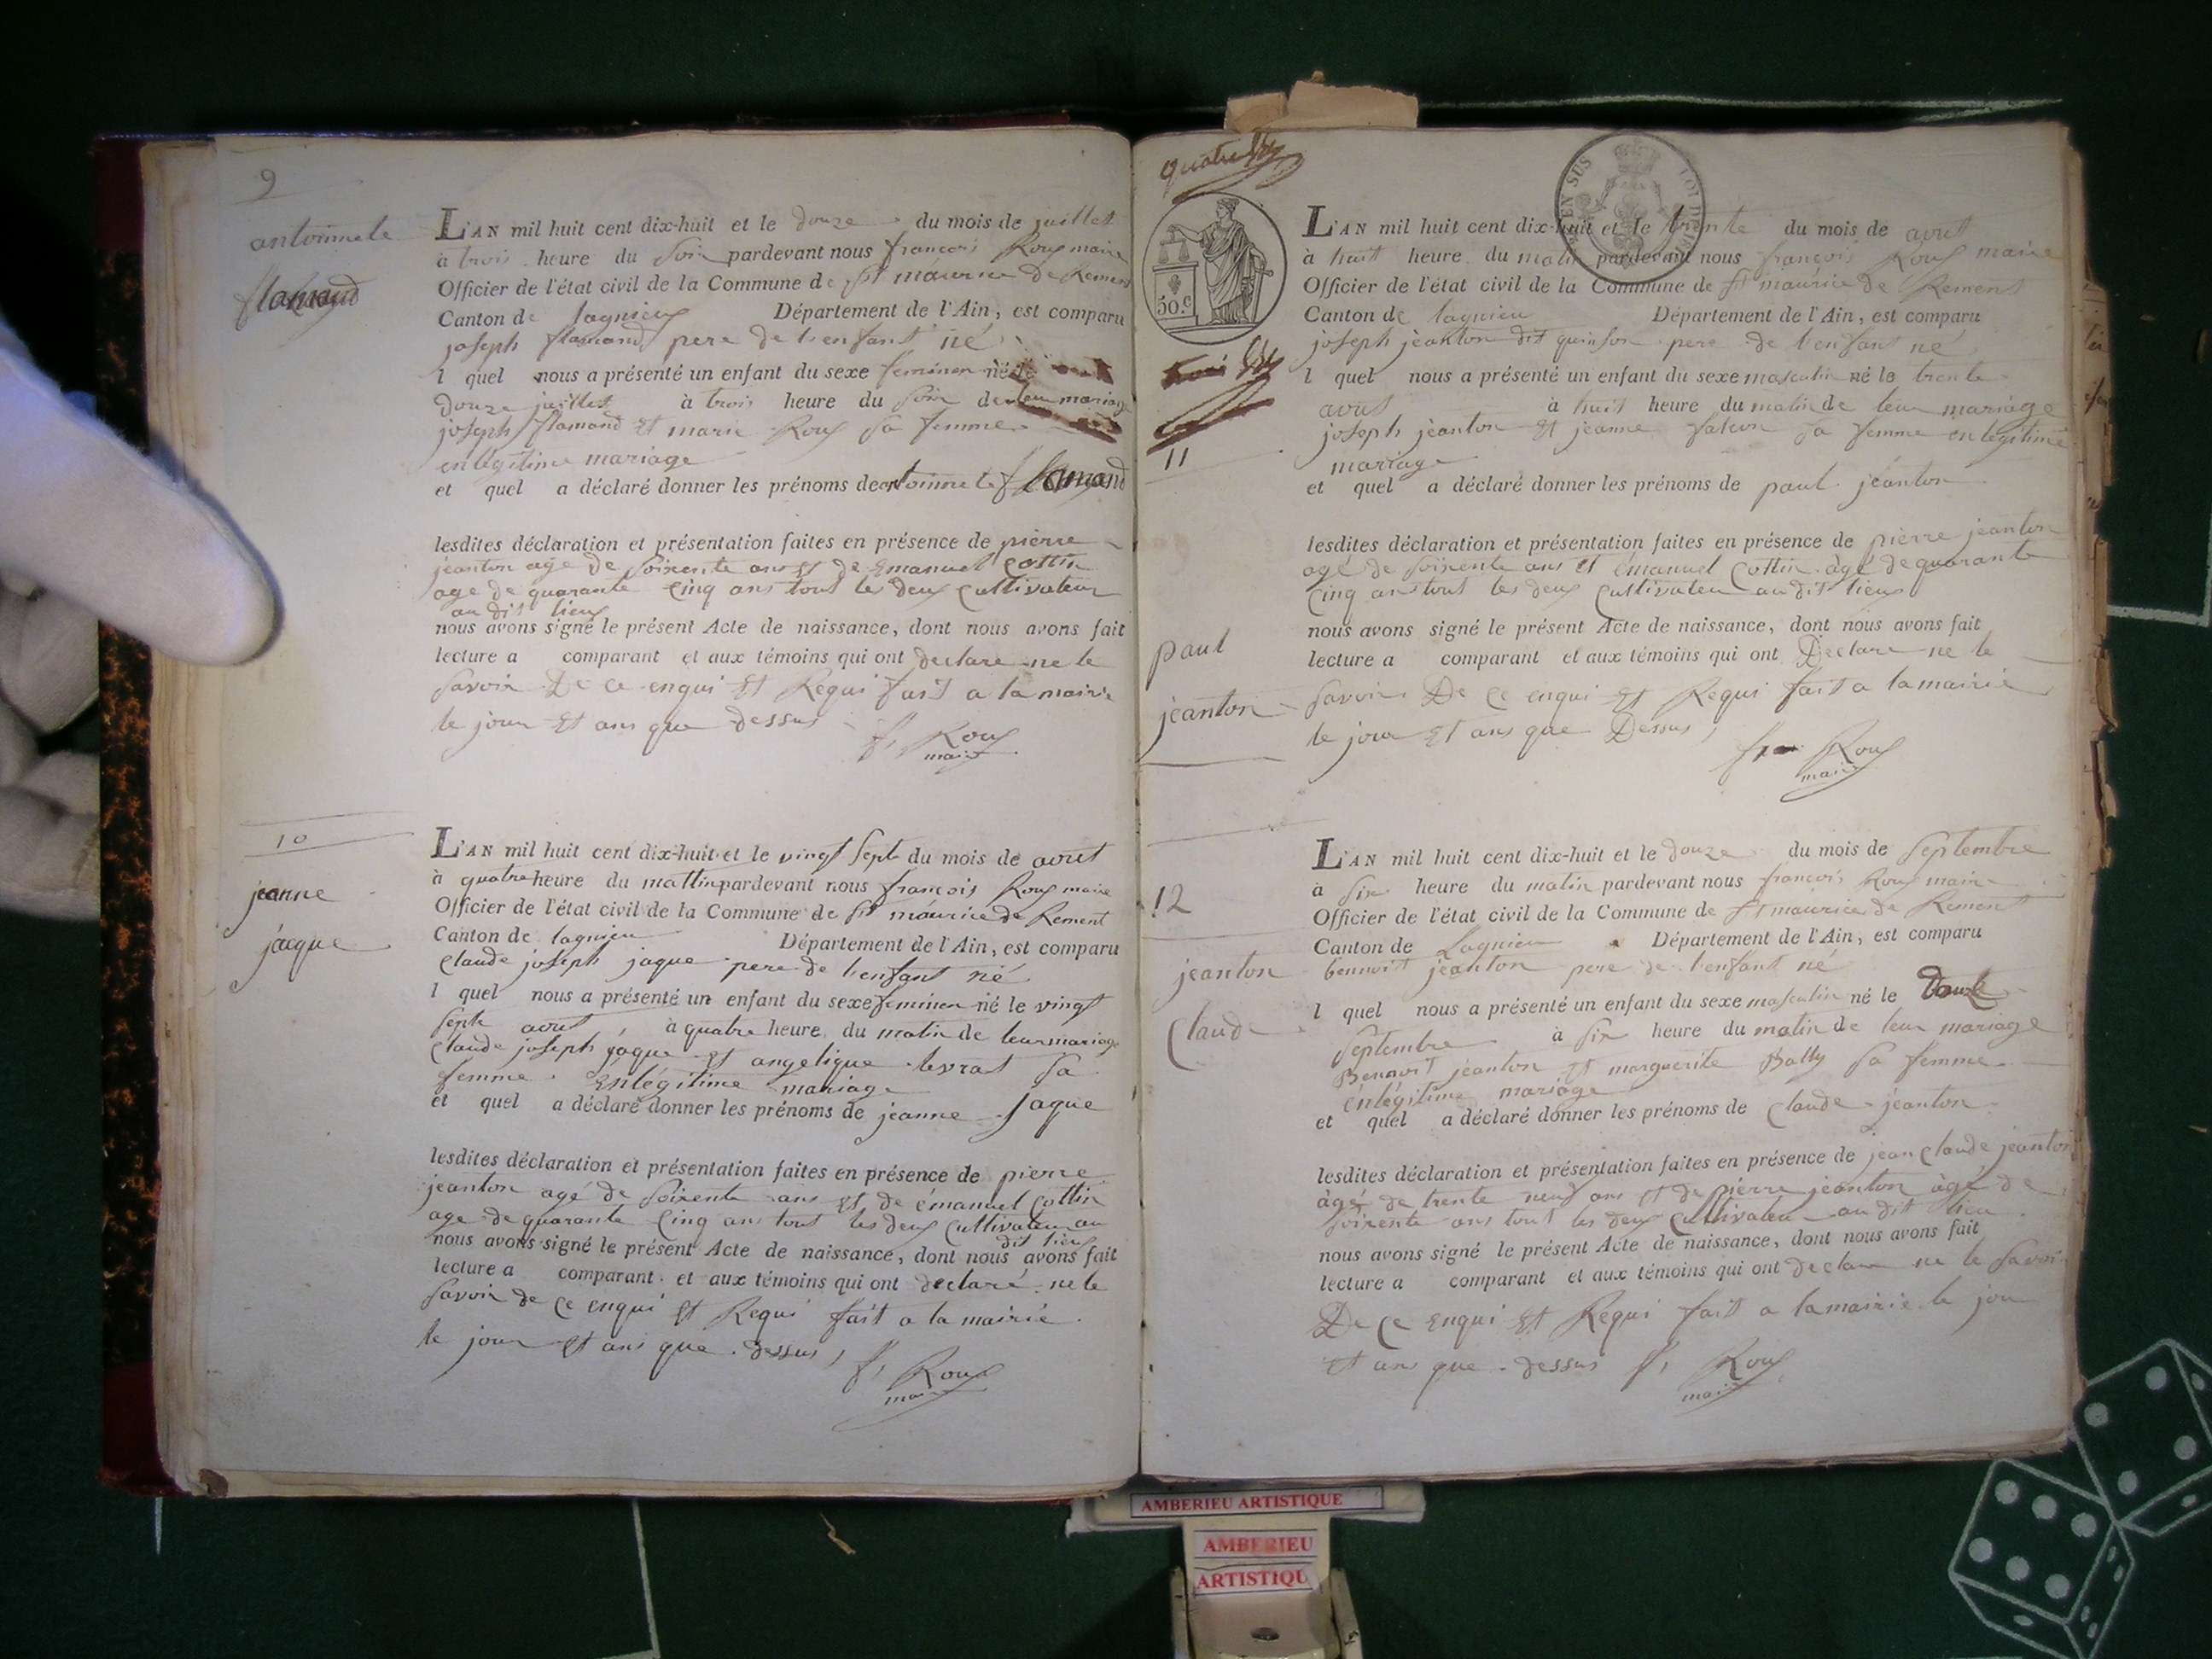 9
antoinnete
flamand
L'AN mil huit cent dix-huit et le douze du mois de juillet
à trois heure du soir pardevant nous francois Roux maire
Officier de l'état civil de la Commune de St maurice de Remens
Canton de lagnieux Département de l'Ain, est comparu
joseph flamand pere de l'enfant né
l quel nous a présenté un enfant du sexe feminen né le
douze juillet à trois heure du soir de leur mariage
joseph flamand Et marie Roux sa femme
en légitime mariage
et quel a déclaré donner les prénoms de antoinnete flamand
lesdites déclaration et présentation faites en présence de pierre
jeanton agé de soixente ans Et de Emanuel Cottin
age de quarante Cinq ans tout les deux Cultivateur
au dit lieux
nous avons signé le présent Acte de naissance, dont nous avons fait
lecture a comparant et aux témoins qui ont declare ne le
savoir De Ce enqui Et Requi fait a la mairie
le jour Et ans que dessus
f, Roux
maire
10
jeanne
jacque
L'AN mil huit cent dix-huit et le vingt sept du mois de aout
à quatre heure du mattin pardevant nous francois Roux maire
Officier de l'état civil de la Commune de St maurice de Rement
Canton de lagnieu Département de l'Ain, est comparu
Claude joseph jaque pere de l'enfant né
l quel nous a présenté un enfant du sexe feminen né le vingt
sept aout à quatre heure du matin de leur mariage
Claude joseph jaque Et angelique levrat sa
femme Enlégitime mariage
et quel a déclaré donner les prénoms de jeanne jaque
lesdites déclaration et présentation faites en présence de pierre
jeanton agé de soixente ans Et de émanuel Cottin
age de quarante Cinq ans tout les deux Cultivateur au
dit lieux
nous avons signé le présent Acte de naissance, dont nous avons fait
lecture a comparant et aux témoins qui ont declaré ne le
savoir de Ce enqui Et Requi fait a la mairie
le jour Et ans que dessus,
f, Roux
maire
quatre
EN SUS
50.c
trois
11
paul
jeanton
L'AN mil huit cent dix-huit et le trente du mois de aout
à huit heure du matin pardevant nous françois Roux maire
Officier de l'état civil de la Commune de St maurice de Remens
Canton de lagnieu Département de l'Ain, est comparu
joseph jeanton dit quinson pere de l'enfant né
l quel nous a présenté un enfant du sexe masculin né le trente
aout à huit heure du matin de leur mariage
joseph jeanton Et jeanne falcon sa femme en légitime
mariage
et quel a déclaré donner les prénoms de paul jeanton
lesdites déclaration et présentation faites en présence de pierre jeanton
agé de soixente ans Et émanuel Cottin âgé de quarante
Cinq ans tout les deux Cultivateu au dit lieux
nous avons signé le présent Acte de naissance, dont nous avons fait
lecture a comparant et aux témoins qui ont Declare ne le
savoir De Ce enqui Et Requi fait a la mairie
le jour Et ans que Dessus,
Roux
maire
12
jeanton
Claude
L'AN mil huit cent dix-huit et le douze du mois de Septembre
à six heure du matin pardevant nous françois Roux maire
Officier de l'état civil de la Commune de St maurice de Rement
Canton de Lagnieu Département de l'Ain, est comparu
bennoit jeanton pere de l'enfant né
l quel nous a présenté un enfant du sexe masculin né le Douze
Septembre à six heure du matin de leur mariage
Bennoit jeanton Et marguerite Bally sa femme
enlégitime mariage
et quel a déclaré donner les prénoms de Claude jeanton
lesdites déclaration et présentation faites en présence de jean Claude jeanton
àgé de trente neuf ans Et de pierre jeanton àgé de
soixente ans tout les deux Cultivateu au dit lieu
nous avons signé le présent Acte de naissance, dont nous avons fait
lecture a comparant et aux témoins qui ont declare ne le savoir
De Ce enqui Et Requi fait a la mairie le jou
Et ans que dessus f, Roux
maire
AMBERIEU ARTISTIQUE
AMBERIEU
ARTISTIQU